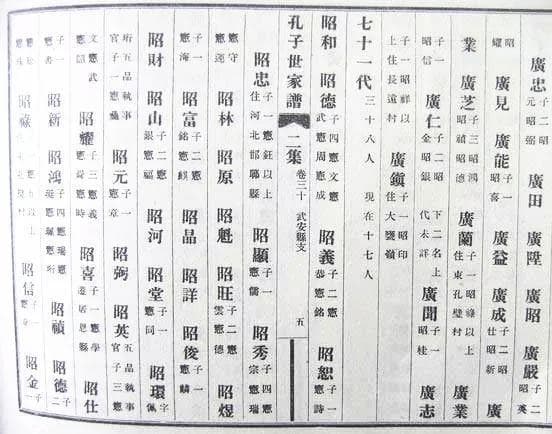 廣忠 子二昭元昭弼 廣田 廣陞 廣昭 廣嚴 子二昭英
昭耀 廣見 廣能 子一昭喜 廣益 廣成 子二昭仕昭新 廣
業 廣芝 子三昭鴻昭禎昭德 廣蘭 子一昭祿以上住東孔壁村 廣業
子一昭信 廣仁 子二昭金昭銀 下二名上代未詳 廣聞 子一昭桂 廣志
子一昭祥以上住長遠村 廣鎮 子一昭印住大甕嶺
七十一代 三十八人 現在十七人
昭和 昭德 子四憲文憲武憲周憲成 昭義 子二憲恭憲銘 昭恕 子一憲詩
孔子世家譜 二集 卷三十 武安縣支 五
昭忠 子一憲鈺以上住河北邯鄲縣 昭顯 子一憲儒 昭秀 子四憲宗憲瑞
憲守憲蓮 昭林 昭原 昭魁 昭旺 子二憲雲憲德 昭煜
子一憲海 昭富 子二憲銘憲麒 昭晶 昭詳 昭俊 子一憲麟
昭財 昭山 子二憲銀憲福 昭河 昭堂 子一憲同 昭環 字佩
珩五品執事官子一憲彝 昭元 子一憲章 昭弼 昭英 五品執事官子三憲
文憲武憲韶 昭耀 子三憲義憲時 昭喜 子一憲學遷居縣 昭仕
子一憲書 昭新 昭鴻 子四憲瑞憲珽憲憲珩 昭禎 昭德 子二
憲憲珠 昭祿 昭信 子一憲 昭金 子一